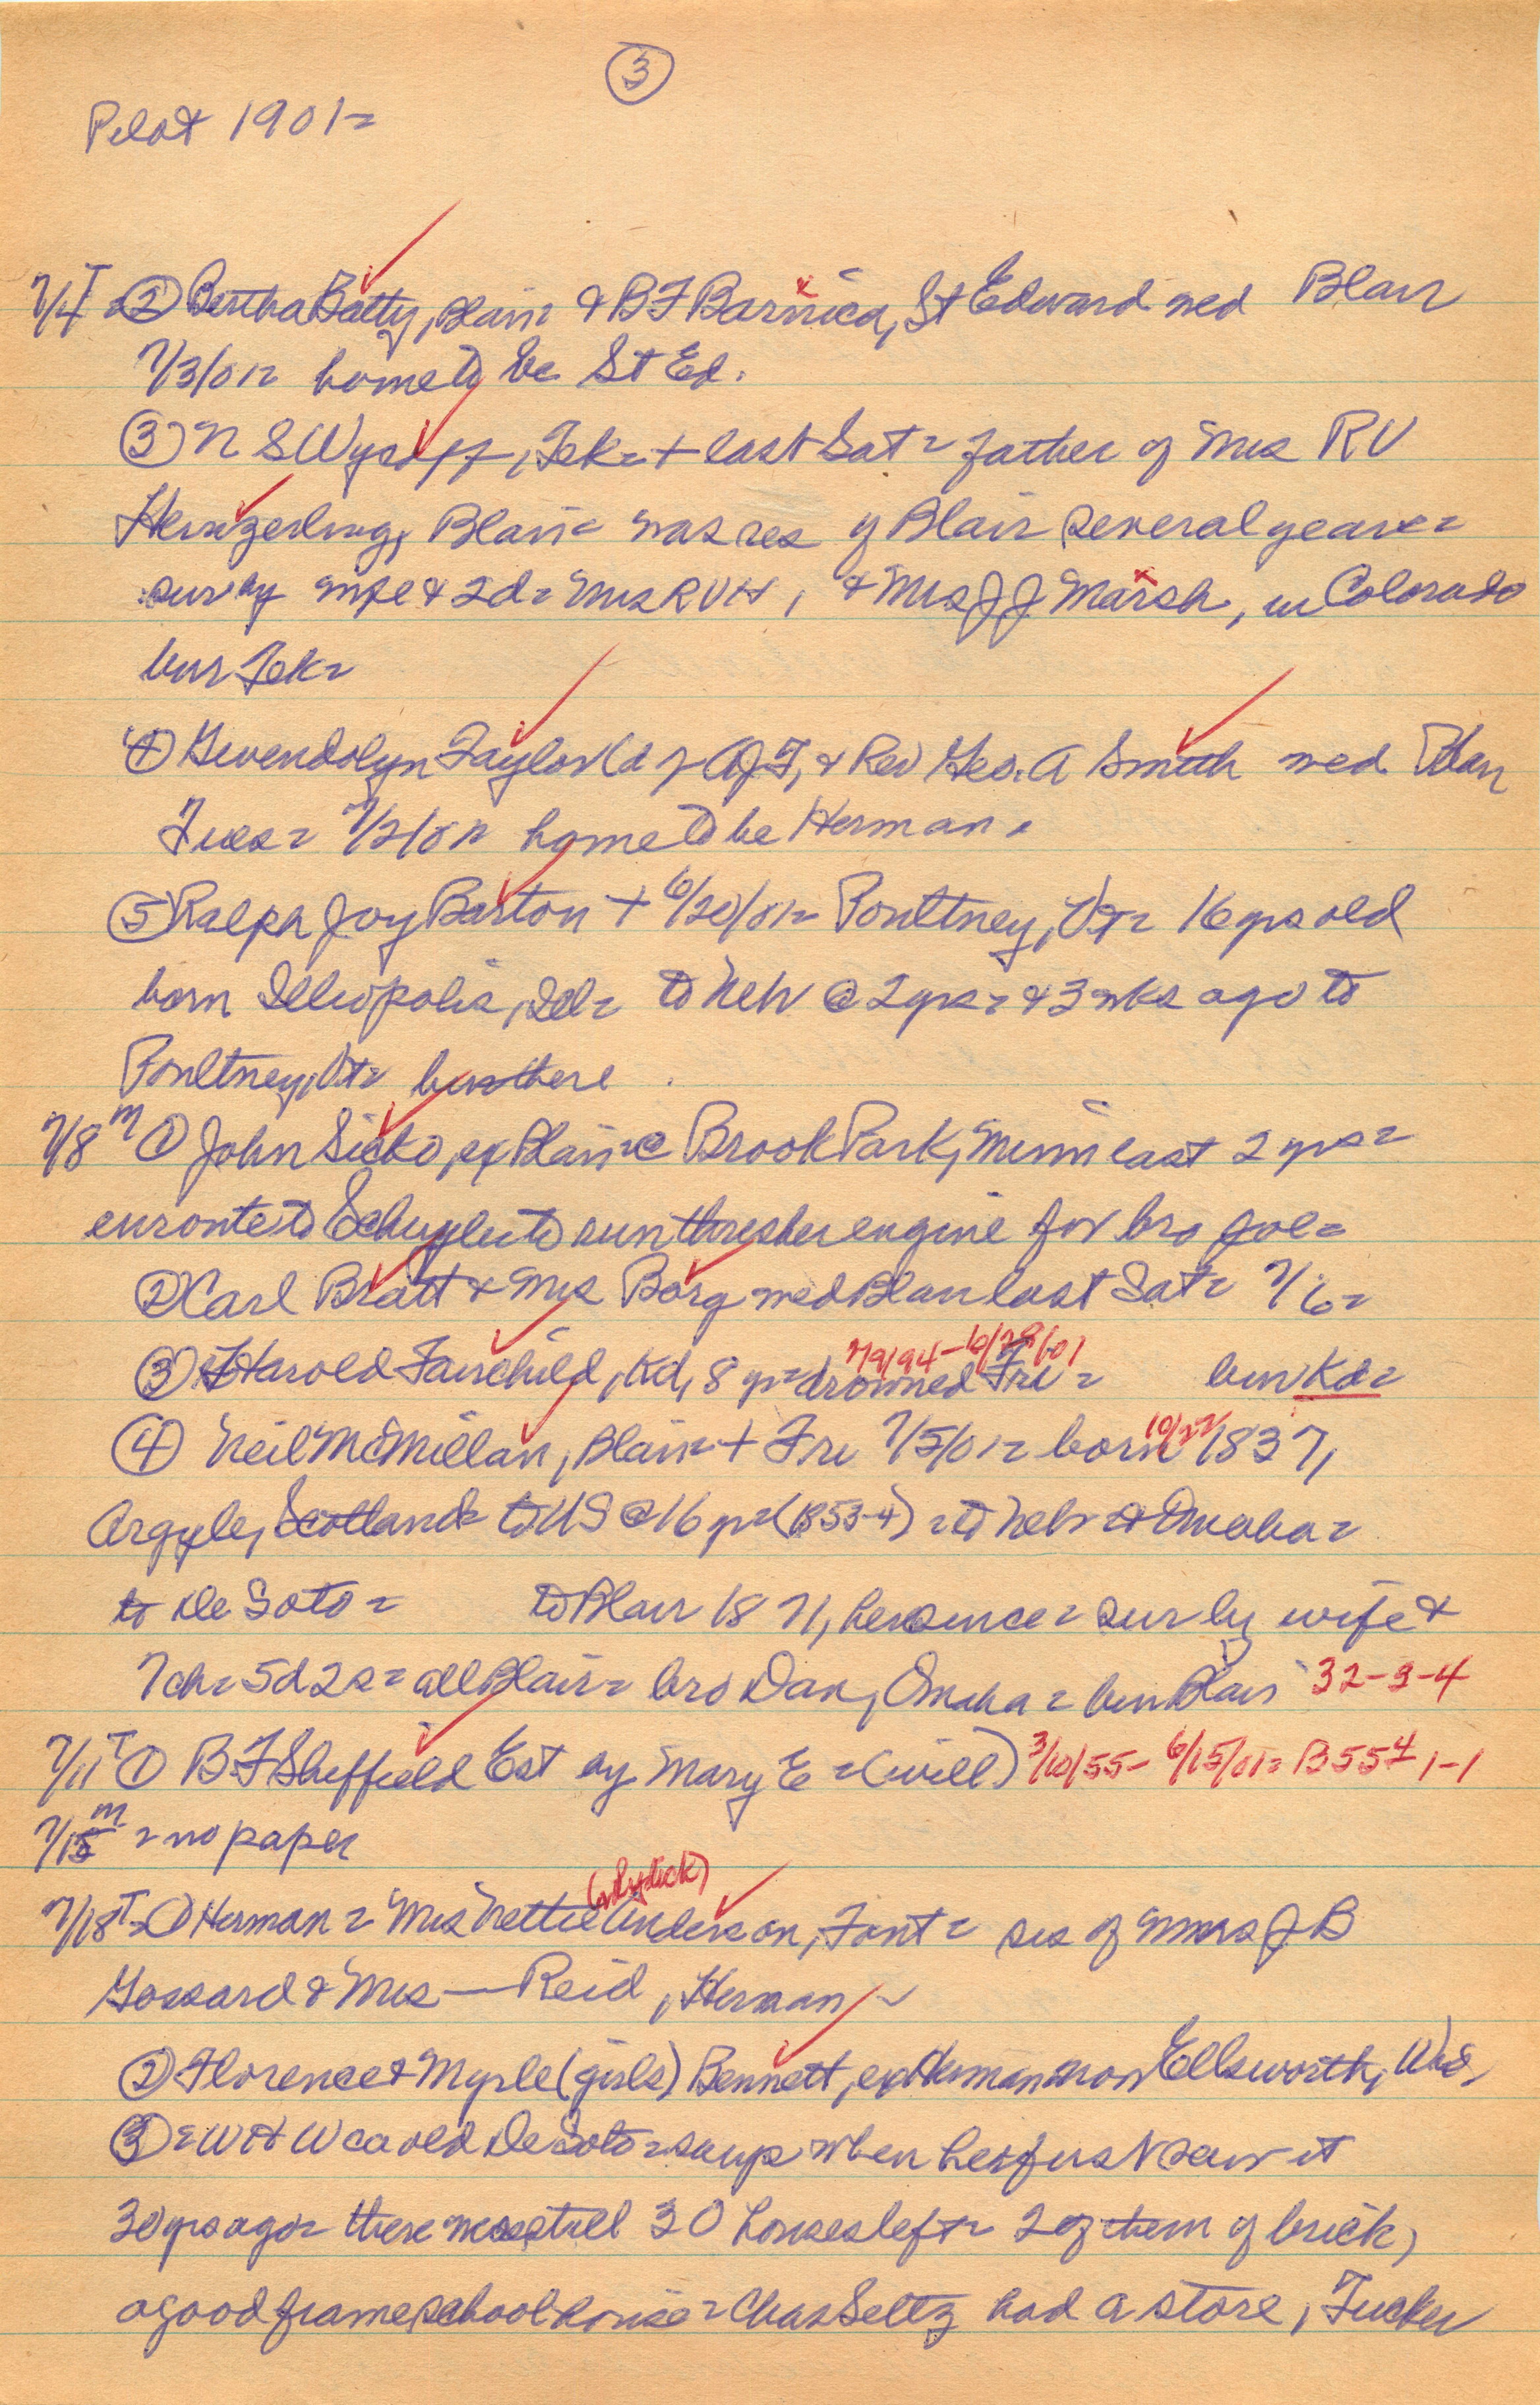 3
Pilot 1901=
7/4 T = ② Bertha Batty, Blair = & B F Barnica, St Edward med Blair
7/3/01= home to be St Ed.
③ N S Wycoff, Tek = + last Sat = father of Mrs R V
Henzerling, Blair = was res of Blair several years =
sur by wife & 2d = Mrs R V H, & Mrs J J Marsh, in Colorado
bur Tek =
④ Gwendolyn Taylor (d of A J T, & Rev Geo. A Smith med Blair
Tues = 7/2/01= home to be Herman.
⑤ Ralph Joy Barton + 6/20/01= Poultney, Vt = 16 yrs old
born Illiopolis, Ill = to Neb @ 2 yrs = & 3 wks ago to
Poultney, Vt = bur there
7/8 M ① John Sicko, ex Blair = @ Brook Park, Minn last 2 yrs =
enroute to Schuyler to run thresher engine for bro Joe =
② Carl Bratt & Mrs Borg med Blair last Sat = 7/6=
③ Harold Fairchild, Kd, 8 yr = drowned Fri = bur Kd =
7/9/94-6/28/01
④ Neil McMillan, Blair = + Fri 7/5/01= born 10/22 1837,
Argyle, Scotland = to US @ 16 yr = (1853-4) = to Neb = @ Omaha =
to De Soto = to Blair 1871, here since = sur by wife &
7 ch = 5d 2s = all Blair = bro Dan, Omaha = bur Blair 32-9-4
7/11 T ① B. F Sheffield Est by Mary E = (will) 3/10/55- 6/15/01= B 55 4, 1-1
7/15 M = no paper
7/18 T = ① Herman = Mrs Nettie Anderson, Font = sis of Mmes J B
Gossard & Mrs — Reid, Herman
② Florence & Myrle (girls) Bennett, ex Herman now Ellsworth, Wis,
③ = W H W ca old De Soto = says when he first saw it
30 yrs ago = there were still 30 houses left = 2 of them of brick,
a good frame school house = Chas Seltz had a store, Tucker